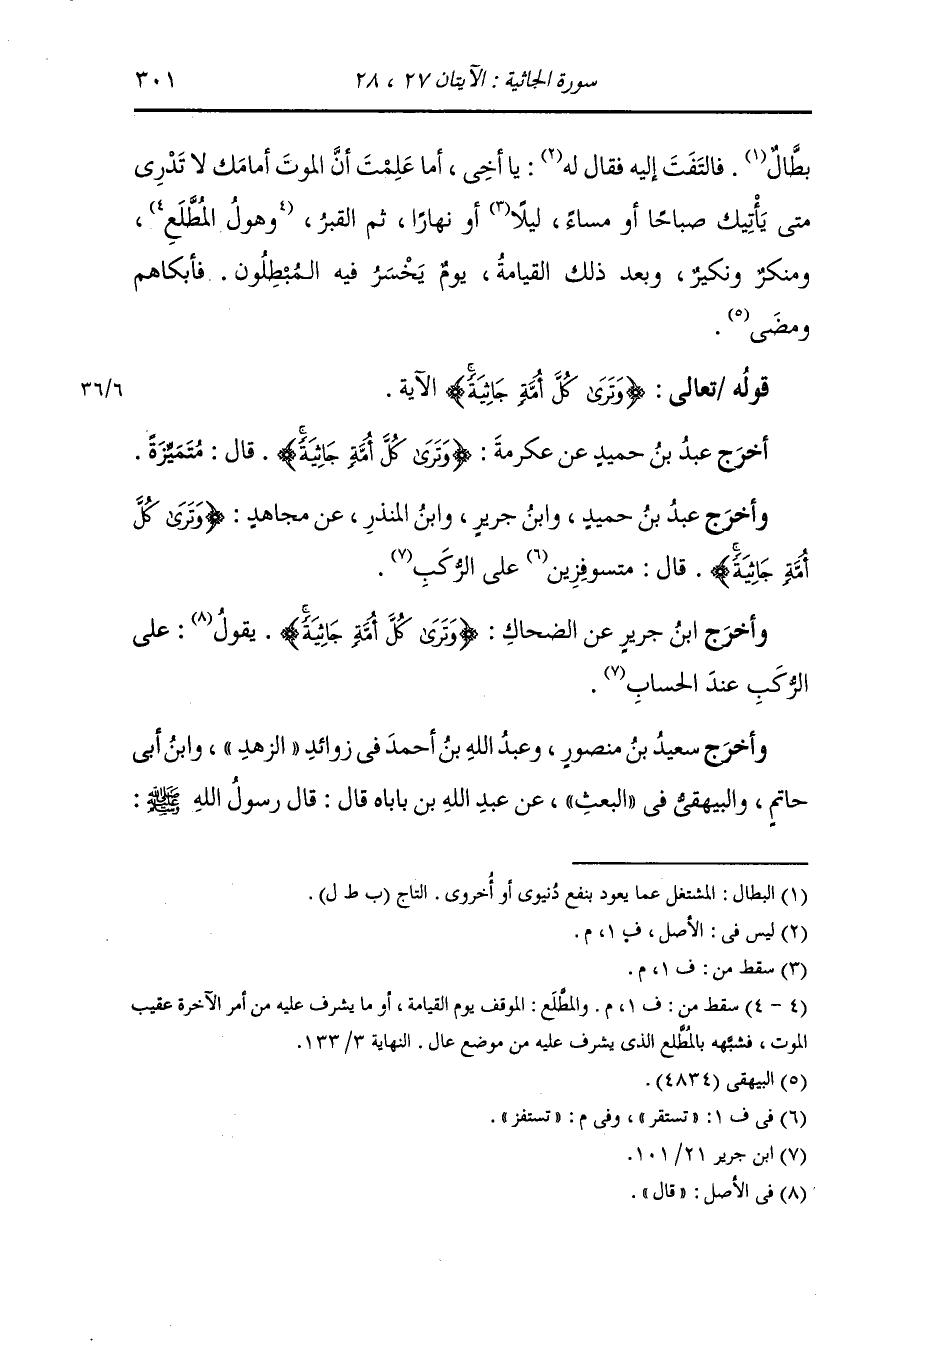 سورة الجاثية : الآيتان ٢٧ ، ٢٨ ٣٠١
بطَّالٌ(١) . فالتَفَتَ إليه فقال له(٢) : يا أخِى ، أما عَلِمْتَ أنَّ الموتَ أمامَك لا تَدْرِى
متى يَأْتِيك صباحًا أو مساءً ، ليلًا(٣) أو نهارًا ، ثم القبرُ ، (٤وهولُ المُطَّلَعِ٤) ،
ومنكرٌ ونكيرٌ ، وبعد ذلك القيامةُ ، يومٌ يَخْسَرُ فيه المُبْطِلُون . فأبكاهم
ومضَى(٥) .
قولُه /تعالى : ﴿وَتَرَىٰ كُلَّ أُمَّةٍ جَاثِيَةًۚ﴾ الآية . ٣٦/٦
أخرَج عبدُ بنُ حميدٍ عن عكرمةَ : ﴿وَتَرَىٰ كُلَّ أُمَّةٍ جَاثِيَةًۚ﴾ . قال : مُتَمَيِّزَةً .
وأخرَج عبدُ بنُ حميدٍ ، وابنُ جريرٍ ، وابنُ المنذرِ ، عن مجاهدٍ : ﴿وَتَرَىٰ كُلَّ
أُمَّةٍ جَاثِيَةًۚ﴾ . قال : متسوفِزِين(٦) على الرُّكَبِ(٧) .
وأخرَج ابنُ جريرٍ عن الضحاكِ : ﴿وَتَرَىٰ كُلَّ أُمَّةٍ جَاثِيَةًۚ﴾ . يقولُ(٨) : على
الرُّكَبِ عندَ الحسابِ(٧) .
وأخرَج سعيدُ بنُ منصورٍ ، وعبدُ اللهِ بنُ أحمدَ فى زوائدِ « الزهدِ » ، وابنُ أبى
حاتمٍ ، والبيهقىُّ فى «البعثِ» ، عن عبدِ اللهِ بن باباه قال : قال رسولُ اللهِ ﷺ :
(١) البطال : المشتغل عما يعود بنفع دُنيوى أو أُخروى . التاج (ب ط ل) .
(٢) ليس فى : الأصل ، ف ١، م .
(٣) سقط من : ف ١، م .
(٤ - ٤) سقط من : ف ١، م . والمطَّلَع : الموقف يوم القيامة ، أو ما يشرف عليه من أمر الآخرة عقيب
الموت ، فشبَّهه بالمُطَّلع الذى يشرف عليه من موضع عال . النهاية ٣/ ١٣٣.
(٥) البيهقى (٤٨٣٤) .
(٦) فى ف ١: « تستقر» ، وفى م : « تستفز» .
(٧) ابن جرير ٢١/ ١٠١.
(٨) فى الأصل : « قال» .